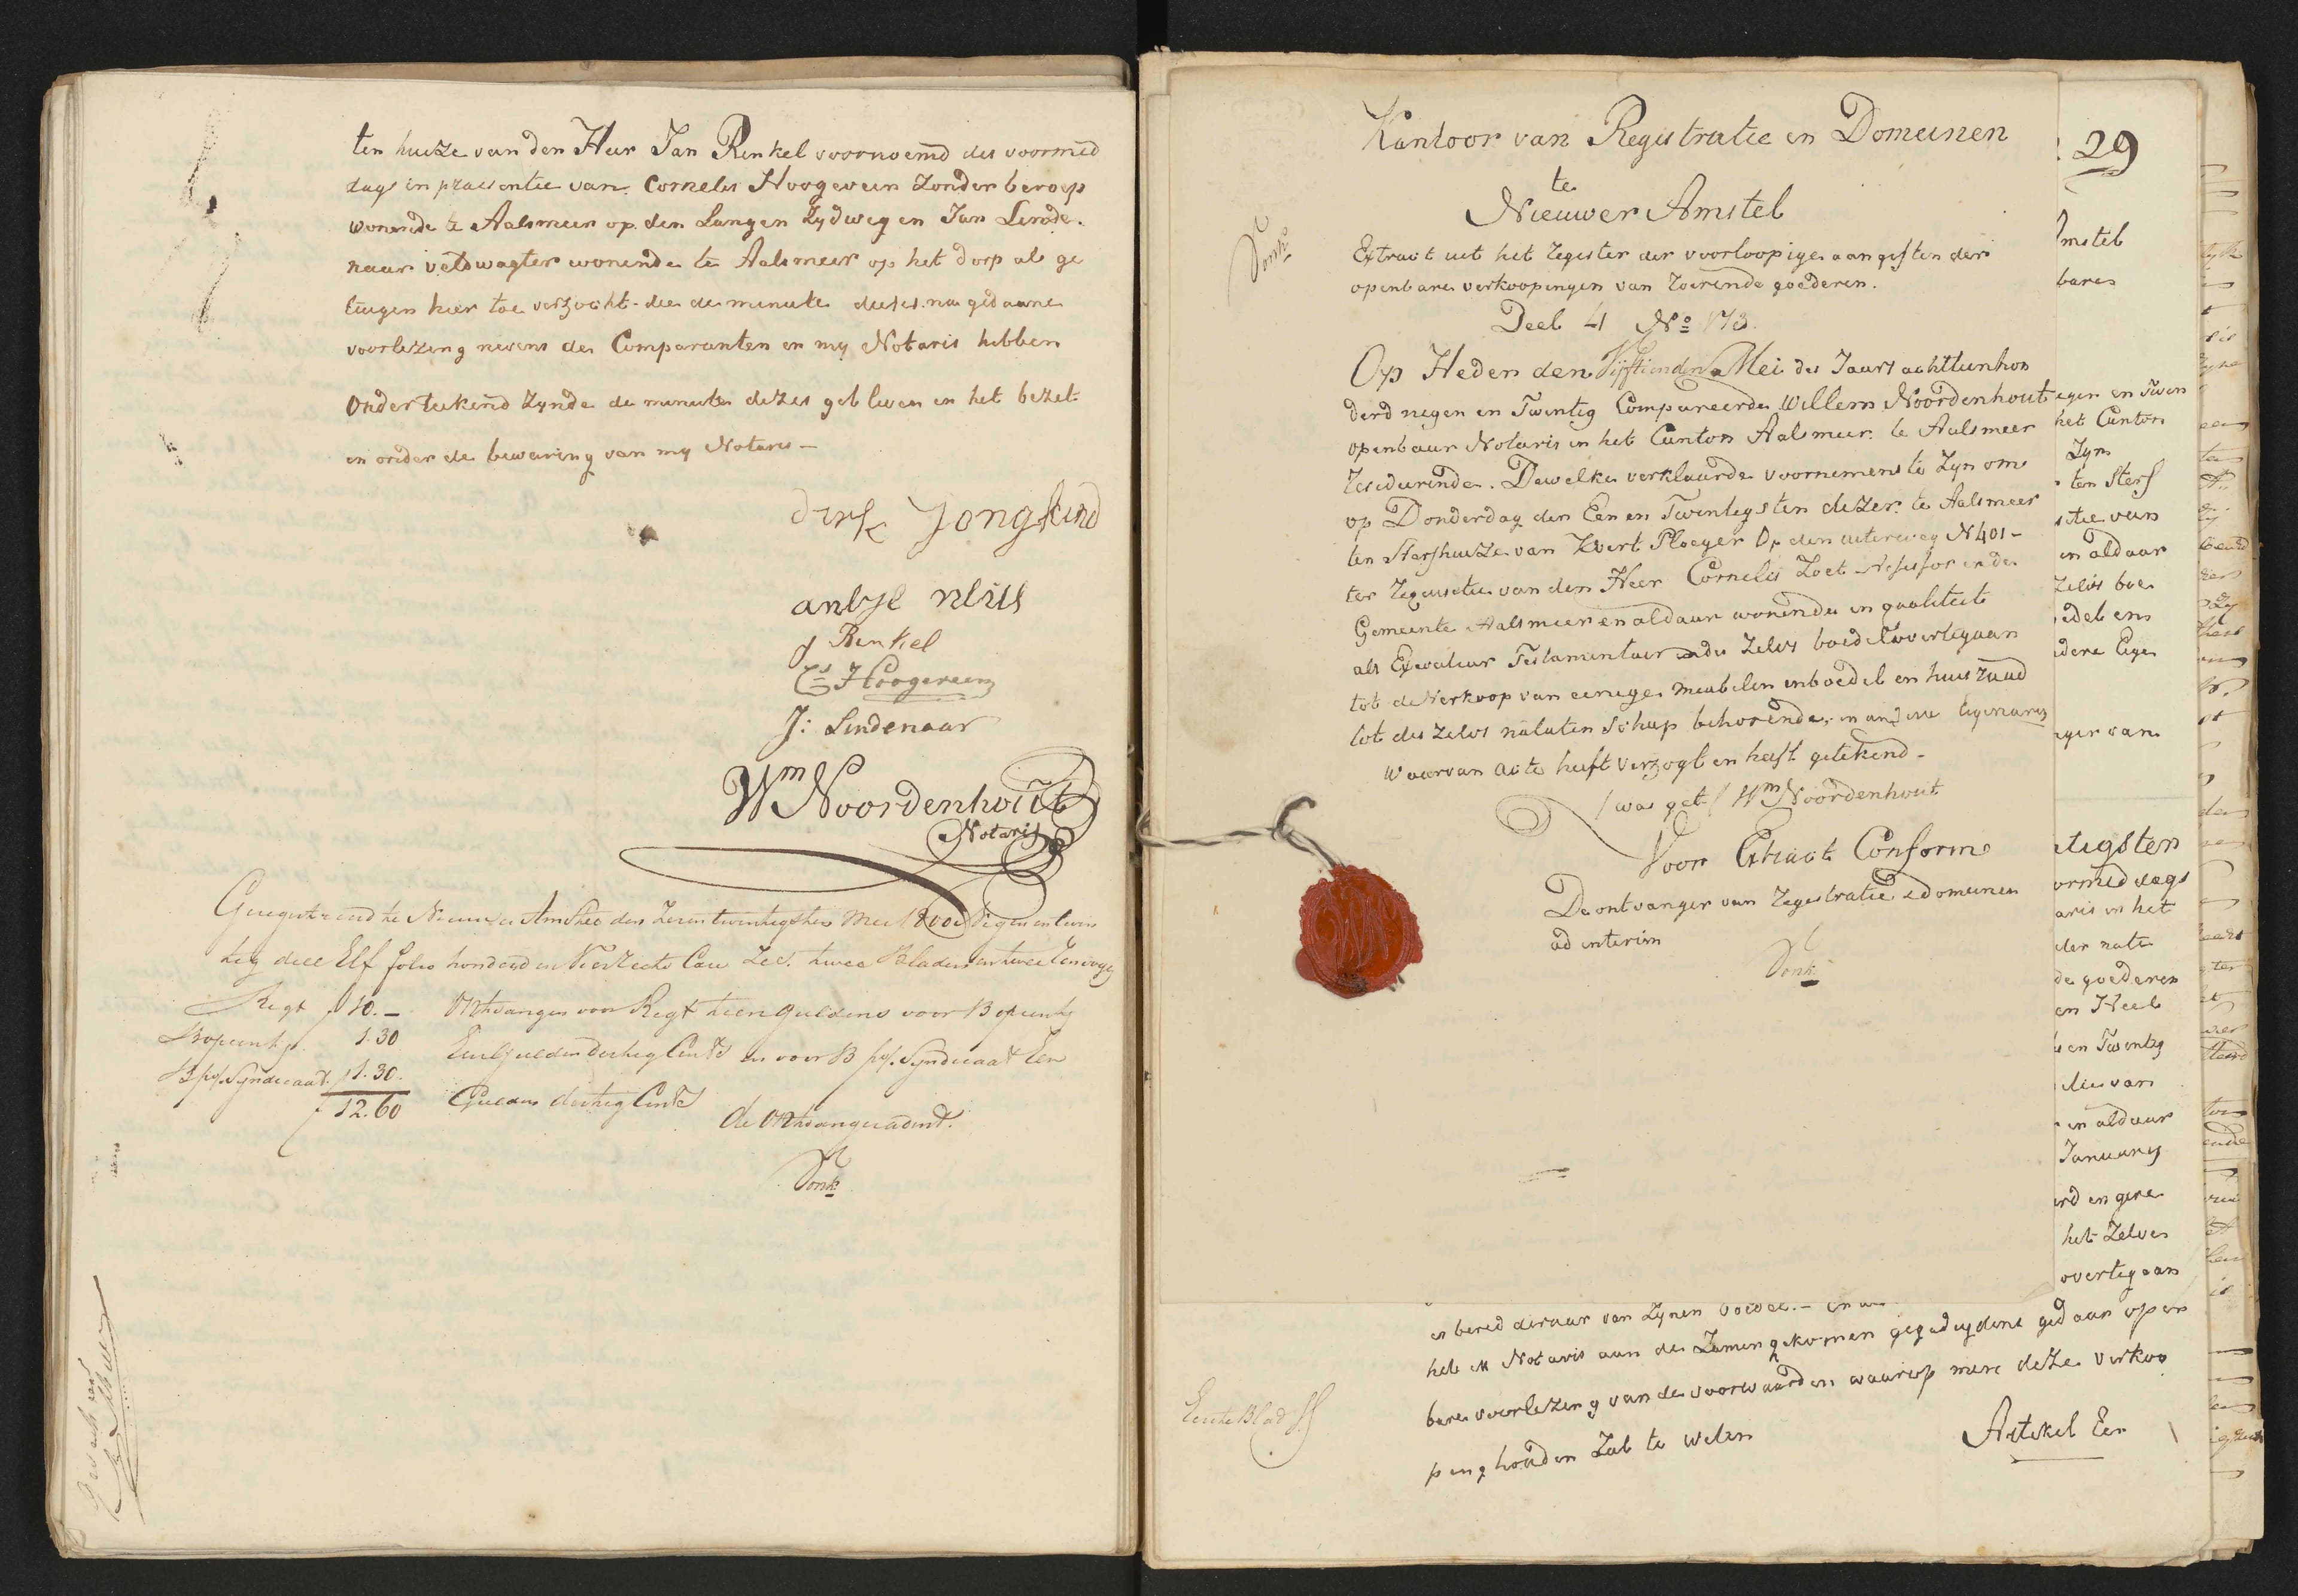 ten huize van den Heer Jan Renkel voornoemd des voormid
dags in praesentie van Cornelis Hoogeveen Zonder beroep
wonende te Aalsmeer op den Langen Zydweg en Jan Linde
naar veldwagter wonende te Aalsmeer op het dorp als ge
tuigen hier toe verzocht die de minute dezes na gedaane
voorlezing nevens de Comparanten en my Notaris hebben
Onderteekend Zynde de minute dezes gebleven in het bezit
en onder de bewaring van my Notaris –
dirk Jongkind
antje
J Renkel
Cs Hoogeveen
J: Lindenaar
Wm Noordenhout
Notaris
Geregistreerd te Nieuwer Amstel den Zeven twintigsten Mei 1800 Negen en twin
tig deel Elf folio honderd en Vier recto Case Zes. twee Bladen en twee
Regt f 10.–
Ontvangen voor Regt tien guldens voor 13 opcenten
13 opcent p. 1.30
Een Gulden dertig Cents en voor 13 pct Syndicaat Een
13 pct Syndicaat f 1.30.
Gulden dertig Cents
f 12.60
de Ontvanger adint.
Donk
29
Kantoor van Registratie en Domeinen
te
Nieuwer Amstel
Donk
Extract uit het Register der voorloopige aangiften der
openbare verkoopingen van Roerende goederen.
Deel 4 No 173.
Op Heden den Vijftienden Mei des Jaars achttienhon
derd negen en Twintig Compareerde Willem Noordenhout
openbaar Notaris in het Canton Aalsmeer te Aalsmeer
Resideerende. Dewelke verklaarde voornemens te Zyn om
op Donderdag den Een en Twintigsten dezer te Aalsmeer
ten Sterfhuize van Evert Ploeger Op den uiterweg N 401 –
ter Requisitie van den Heer Cornelis Zoet Assessor in de
Gemeente Aalsmeer en aldaar wonende in qualiteit
als Executeur Testamentair in des Zelvs boedel overtegaan
tot de Verkoop van eenige meubelen inboedel en huisraad
tot des Zelvs nalatenschap behorende, en andere Eigenaren
Waarvan acte heeft verzogt en heeft getekend –
/was get/ Wm Noordenhout
Voor Extract Conform
De ontvanger van Registratie & domeinen
ad interim
Donk
mstel
bares
egen en Twen
het Canton
Zyn
ten Sterf
sitie van
en aldaar
Zelvs boe
edel ens
dere Eige
eger van
tigsten
ormiddags
aris in het
der nate
de goederen
en Heel
en Twintig
en aldaar
January
het Zelve
overtegaan
heb ik Notaris aan de Zamengekomen gegadigdens gedaan open
bare voorlezing van de voorwaarden waarop men deze verkoo
ping houden Zal te weten
Artikel Een
Eerste Blad